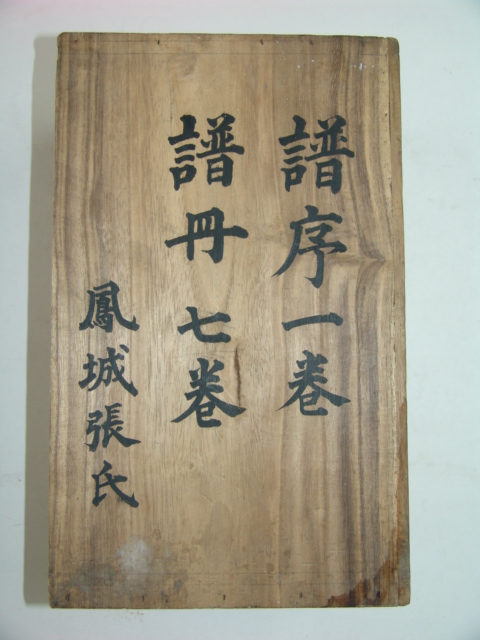 譜序一巻
譜冊七巻
鳳城張氏